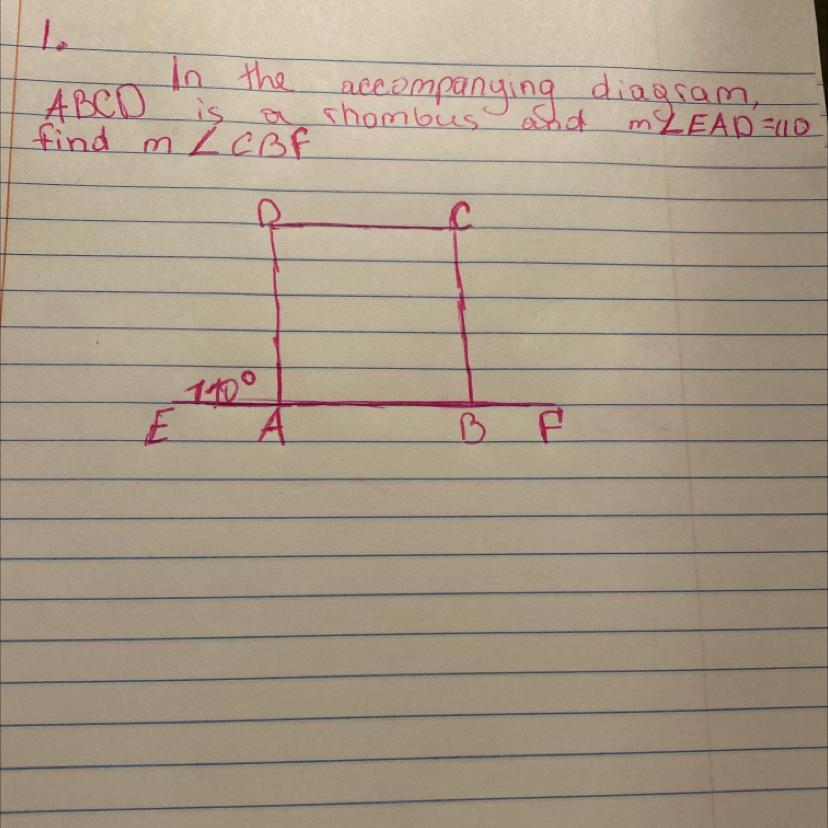 1.
In the accompanying diagram,
ABCD is a rhombus and m∠EAD=110
find m∠CBF
D C
110°
E A B F